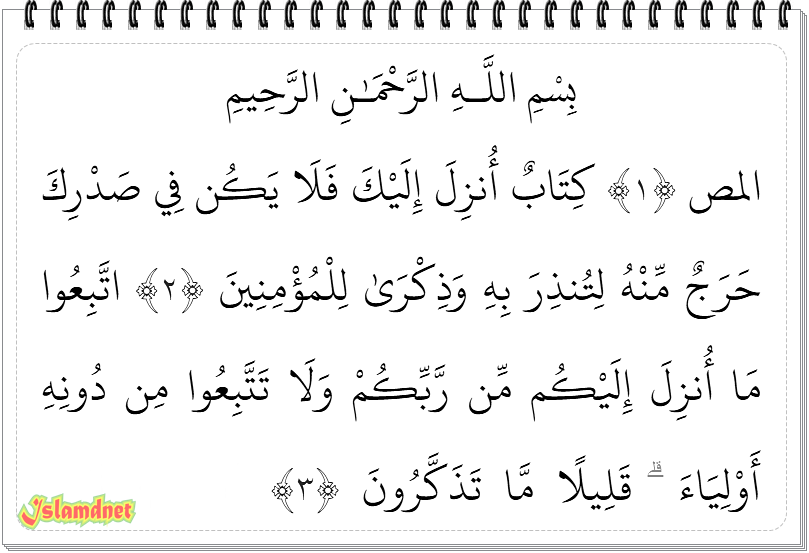 بِسْمِ اللَّـهِ الرَّحْمَـٰنِ الرَّحِيمِ
المص ﴿١﴾ كِتَابٌ أُنزِلَ إِلَيْكَ فَلَا يَكُن فِي صَدْرِكَ
حَرَجٌ مِّنْهُ لِتُنذِرَ بِهِ وَذِكْرَىٰ لِلْمُؤْمِنِينَ ﴿٢﴾ اتَّبِعُوا
مَا أُنزِلَ إِلَيْكُم مِّن رَّبِّكُمْ وَلَا تَتَّبِعُوا مِن دُونِهِ
أَوْلِيَاءَ ۗ قَلِيلًا مَّا تَذَكَّرُونَ ﴿٣﴾
Islamdnet